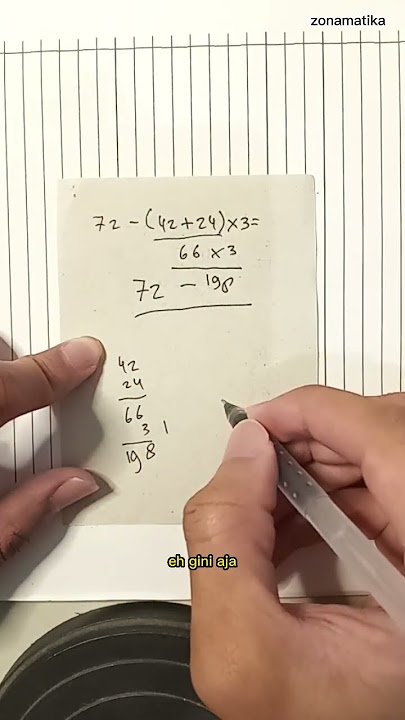 zonamatika
72 - (42+24)×3=
66 × 3
72 - 198
42
24
66
3 1
198
eh gini aja